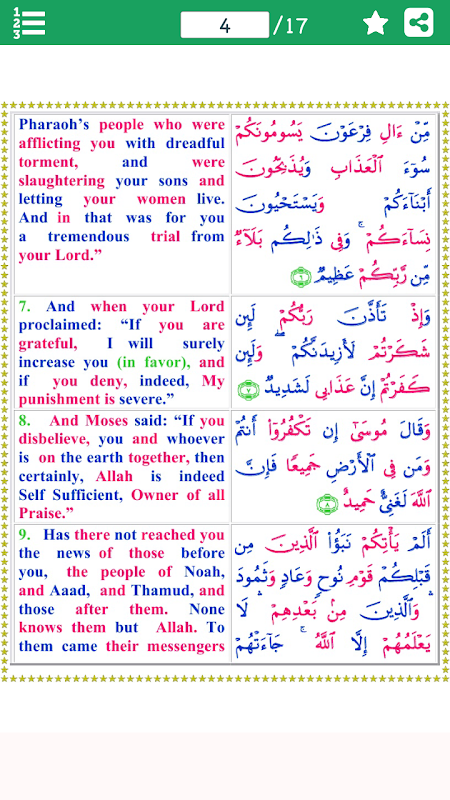 1
2
3
4
/17
Pharaoh's people who were
afflicting you with dreadful
torment, and were
slaughtering your sons and
letting your women live.
And in that was for you
a tremendous trial from
your Lord.”
مِّنْ ءَالِ فِرْعَوْنَ يَسُومُونَكُمْ
سُوٓءَ ٱلْعَذَابِ وَيُذَبِّحُونَ
أَبْنَآءَكُمْ وَيَسْتَحْيُونَ
نِسَآءَكُمْ ۚ وَفِى ذَٰلِكُم بَلَآءٌ
مِّن رَّبِّكُمْ عَظِيمٌ ٦
7. And when your Lord
proclaimed: “If you are
grateful, I will surely
increase you (in favor), and
if you deny, indeed, My
punishment is severe.”
وَإِذْ تَأَذَّنَ رَبُّكُمْ لَئِن
شَكَرْتُمْ لَأَزِيدَنَّكُمْ ۖ وَلَئِن
كَفَرْتُمْ إِنَّ عَذَابِى لَشَدِيدٌ ٧
8. And Moses said: “If you
disbelieve, you and whoever
is on the earth together, then
certainly, Allah is indeed
Self Sufficient, Owner of all
Praise.”
وَقَالَ مُوسَىٰٓ إِن تَكْفُرُوٓا۟ أَنتُمْ
وَمَن فِى ٱلْأَرْضِ جَمِيعًا فَإِنَّ
ٱللَّهَ لَغَنِىٌّ حَمِيدٌ ٨
9. Has there not reached you
the news of those before
you, the people of Noah,
and Aaad, and Thamud, and
those after them. None
knows them but Allah. To
them came their messengers
أَلَمْ يَأْتِكُمْ نَبَؤُا۟ ٱلَّذِينَ مِن
قَبْلِكُمْ قَوْمِ نُوحٍ وَعَادٍ وَثَمُودَ ۛ
وَٱلَّذِينَ مِنۢ بَعْدِهِمْ ۛ لَا
يَعْلَمُهُمْ إِلَّا ٱللَّهُ ۚ جَآءَتْهُمْ